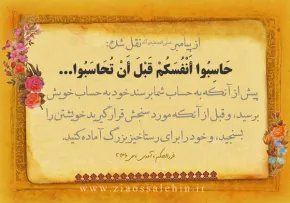 از پیامبر نقل شده:
حَاسِبُوا أَنْفُسَكُمْ قَبْلَ أَنْ تُحَاسَبُوا...
پیش از آنکه به حساب شما برسند خود به حساب خویش
برسید، و قبل از آنکه مورد سنجش قرار گیرید خویشتن را
بسنجید، و خود را برای رستاخیز بزرگ آماده کنید.
www.ziaossalehin.ir